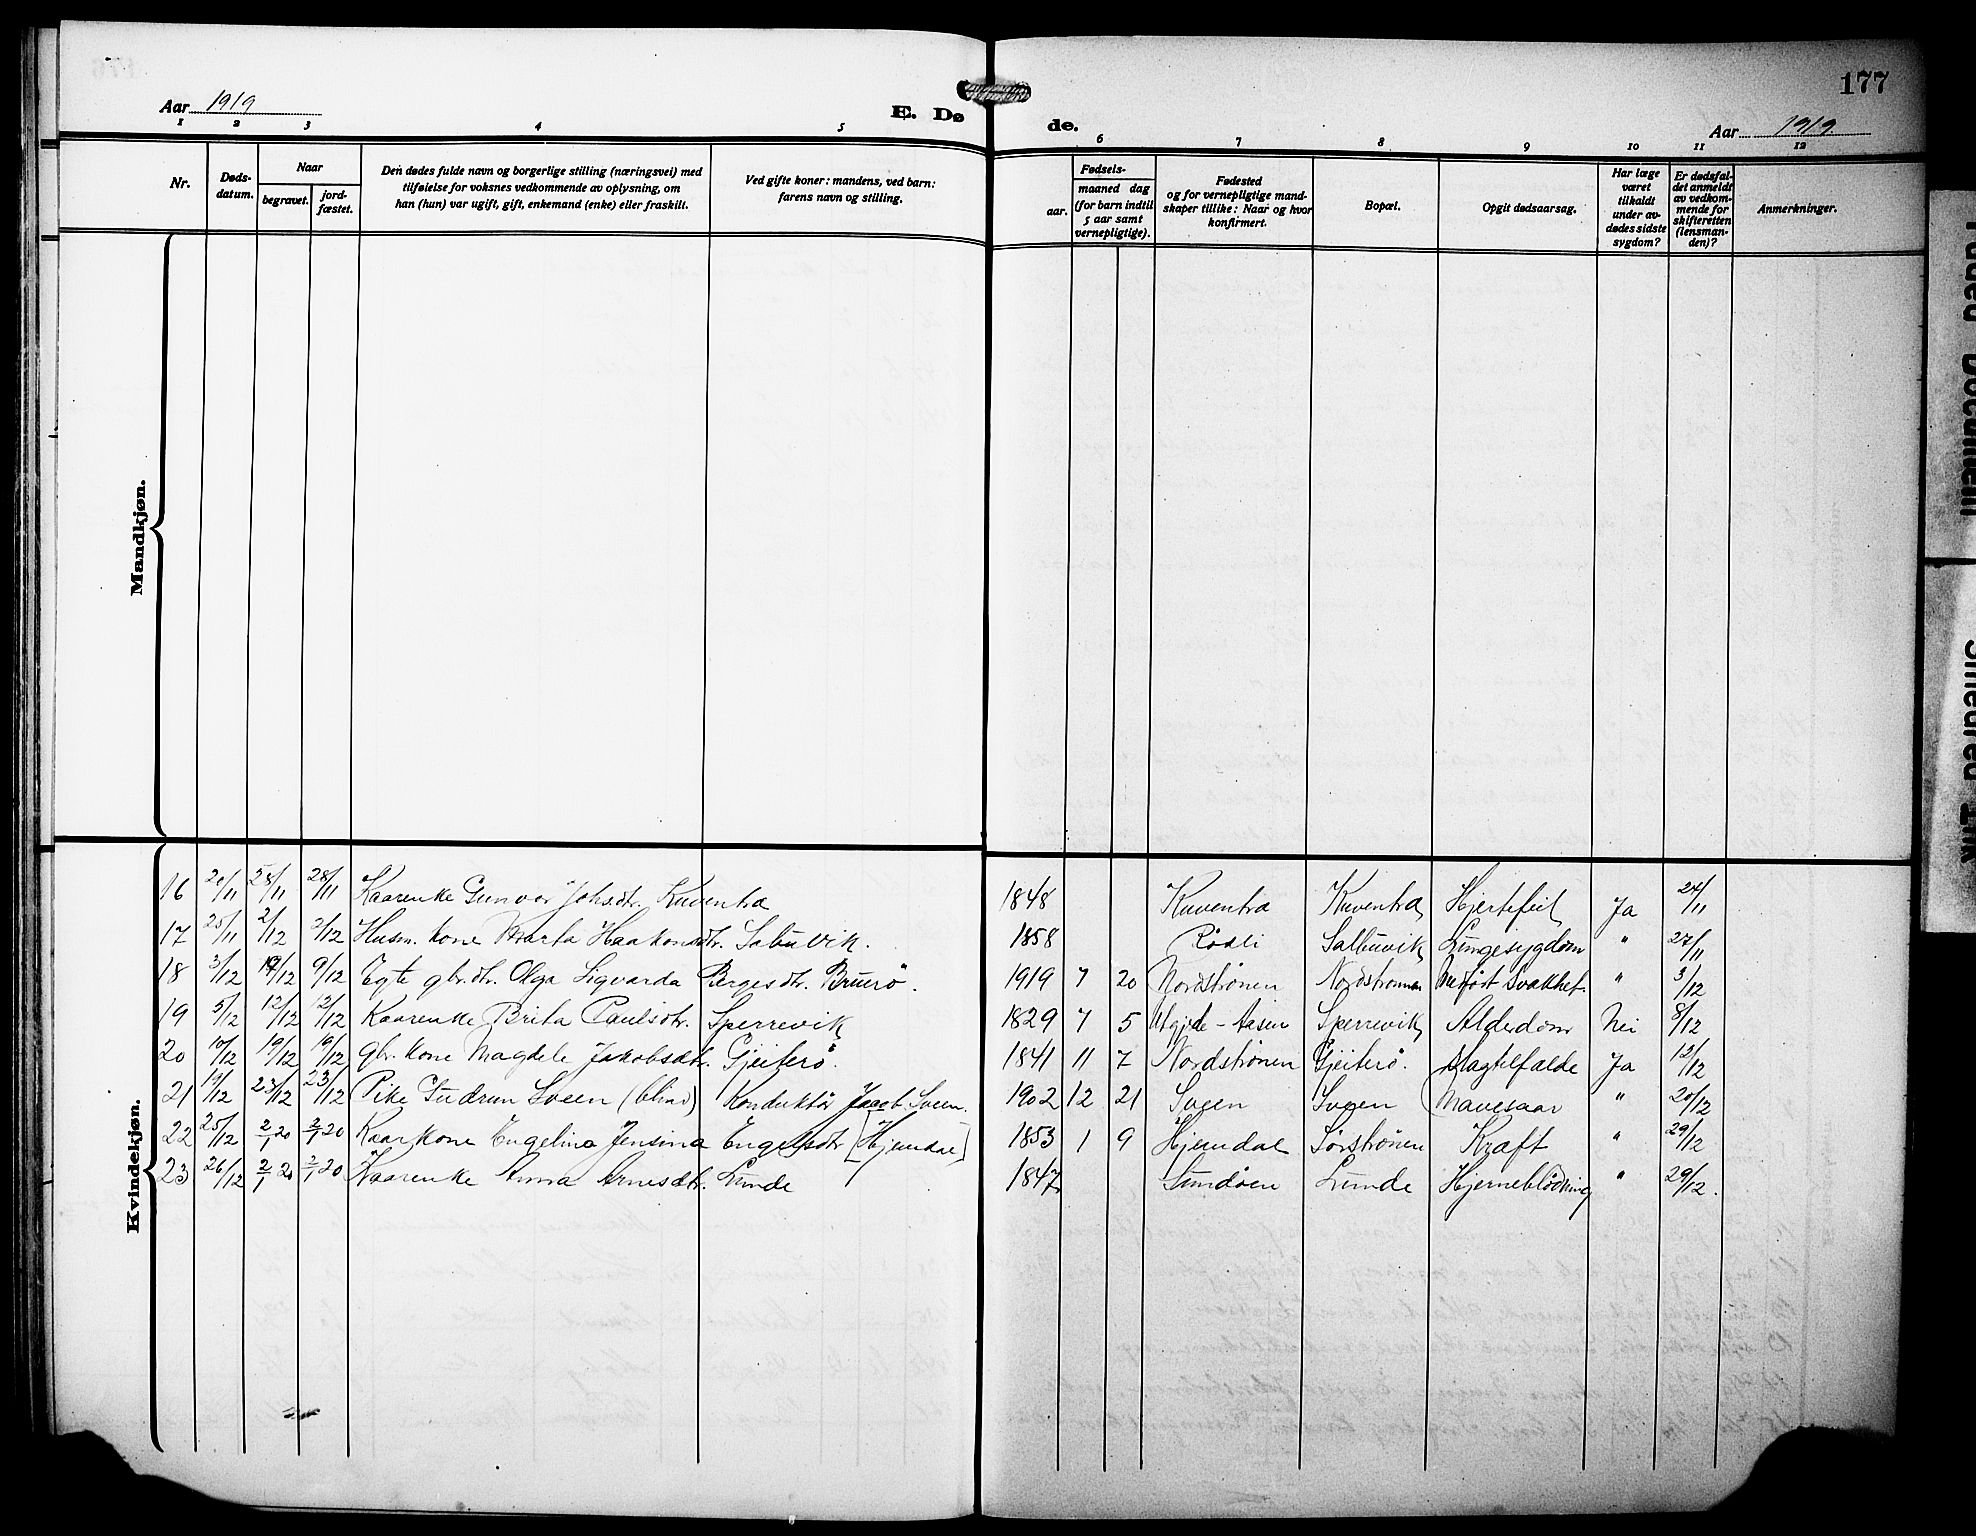 177
Aar 1919
E. Døde.
Aar 1919
1 2 3 4 5 6 7 8 9 10 11 12
Nr.
Døds-
datum.
Naar
begravet.
jord-
fæstet.
Den dødes fulde navn og borgerlige stilling (næringsvei) med
tilføielse for voksnes vedkommende av oplysning, om
han (hun) var ugift, gift, enkemand (enke) eller fraskilt.
Ved gifte koner: mandens, ved barn:
farens navn og stilling.
Fødsels-
aar.
maaned dag
(for barn indtil
5 aar samt
vernepligtige).
Fødested
og for vernepligtige mand-
skaper tillike: Naar og hvor
konfirmert.
Bopæl.
Opgit dødsaarsag.
Har læge
været
tilkaldt
under av-
dødes sidste
sygdom?
Er dødsfal-
det anmeldt
av vedkom-
mende for
skifteretten
(lensman-
den)?
Anmerkninger.
Mandkjøn.
Kvindekjøn.
16 20/11 28/11 28/11 Kaarenke Gunvor Johsdtr. Kuventræ 1848 Kuventræ Kuventræ Hjertefeil Ja 24/11
17 25/11 2/12 2/12 Husm. kone Marta Haakonsdtr. Salbuvik. 1858 Rødli Salbuvik Lungesygdom " 27/11
18 3/12 9/12 9/12 Egte gbr. dtr. Olga Sigvarda Bergesdtr. Bruerö. 1919 7 20 Nordstrønen Nordstrønen Medfødt Svakhet. " 3/12
19 5/12 12/12 12/12 Kaarenke Brita Paulsdtr. Sperrevik 1829 7 5 Utgjede-Aasen Sperrevik Alderdom Nei 8/12
20 10/12 19/12 19/12 Gbr. kone Magdele Jakobsdtr. Gjeiterö. 1841 11 7 Nordstrønen Gjeiterö. Slagtilfælde Ja 12/12
21 19/12 23/12 23/12 Pike Gudrun Sveen (blind) Konduktör Jacob Sveen. 1902 12 21 Sveen Sveen Mavesaar " 20/12
22 25/12 2/1 20 2/1 20 Kaarkone Engelina Jensina Engelsdtr [Hjemdal] 1853 1 9 Hjemdal Sörstrønen Kræft " 29/12
23 26/12 2/1 20 2/1 20 Kaarenke Anna Arnesdtr. Lunde 1847 Sundöen Lunde Hjerneblödning " 29/12.
Faded Document
Smeared Ink